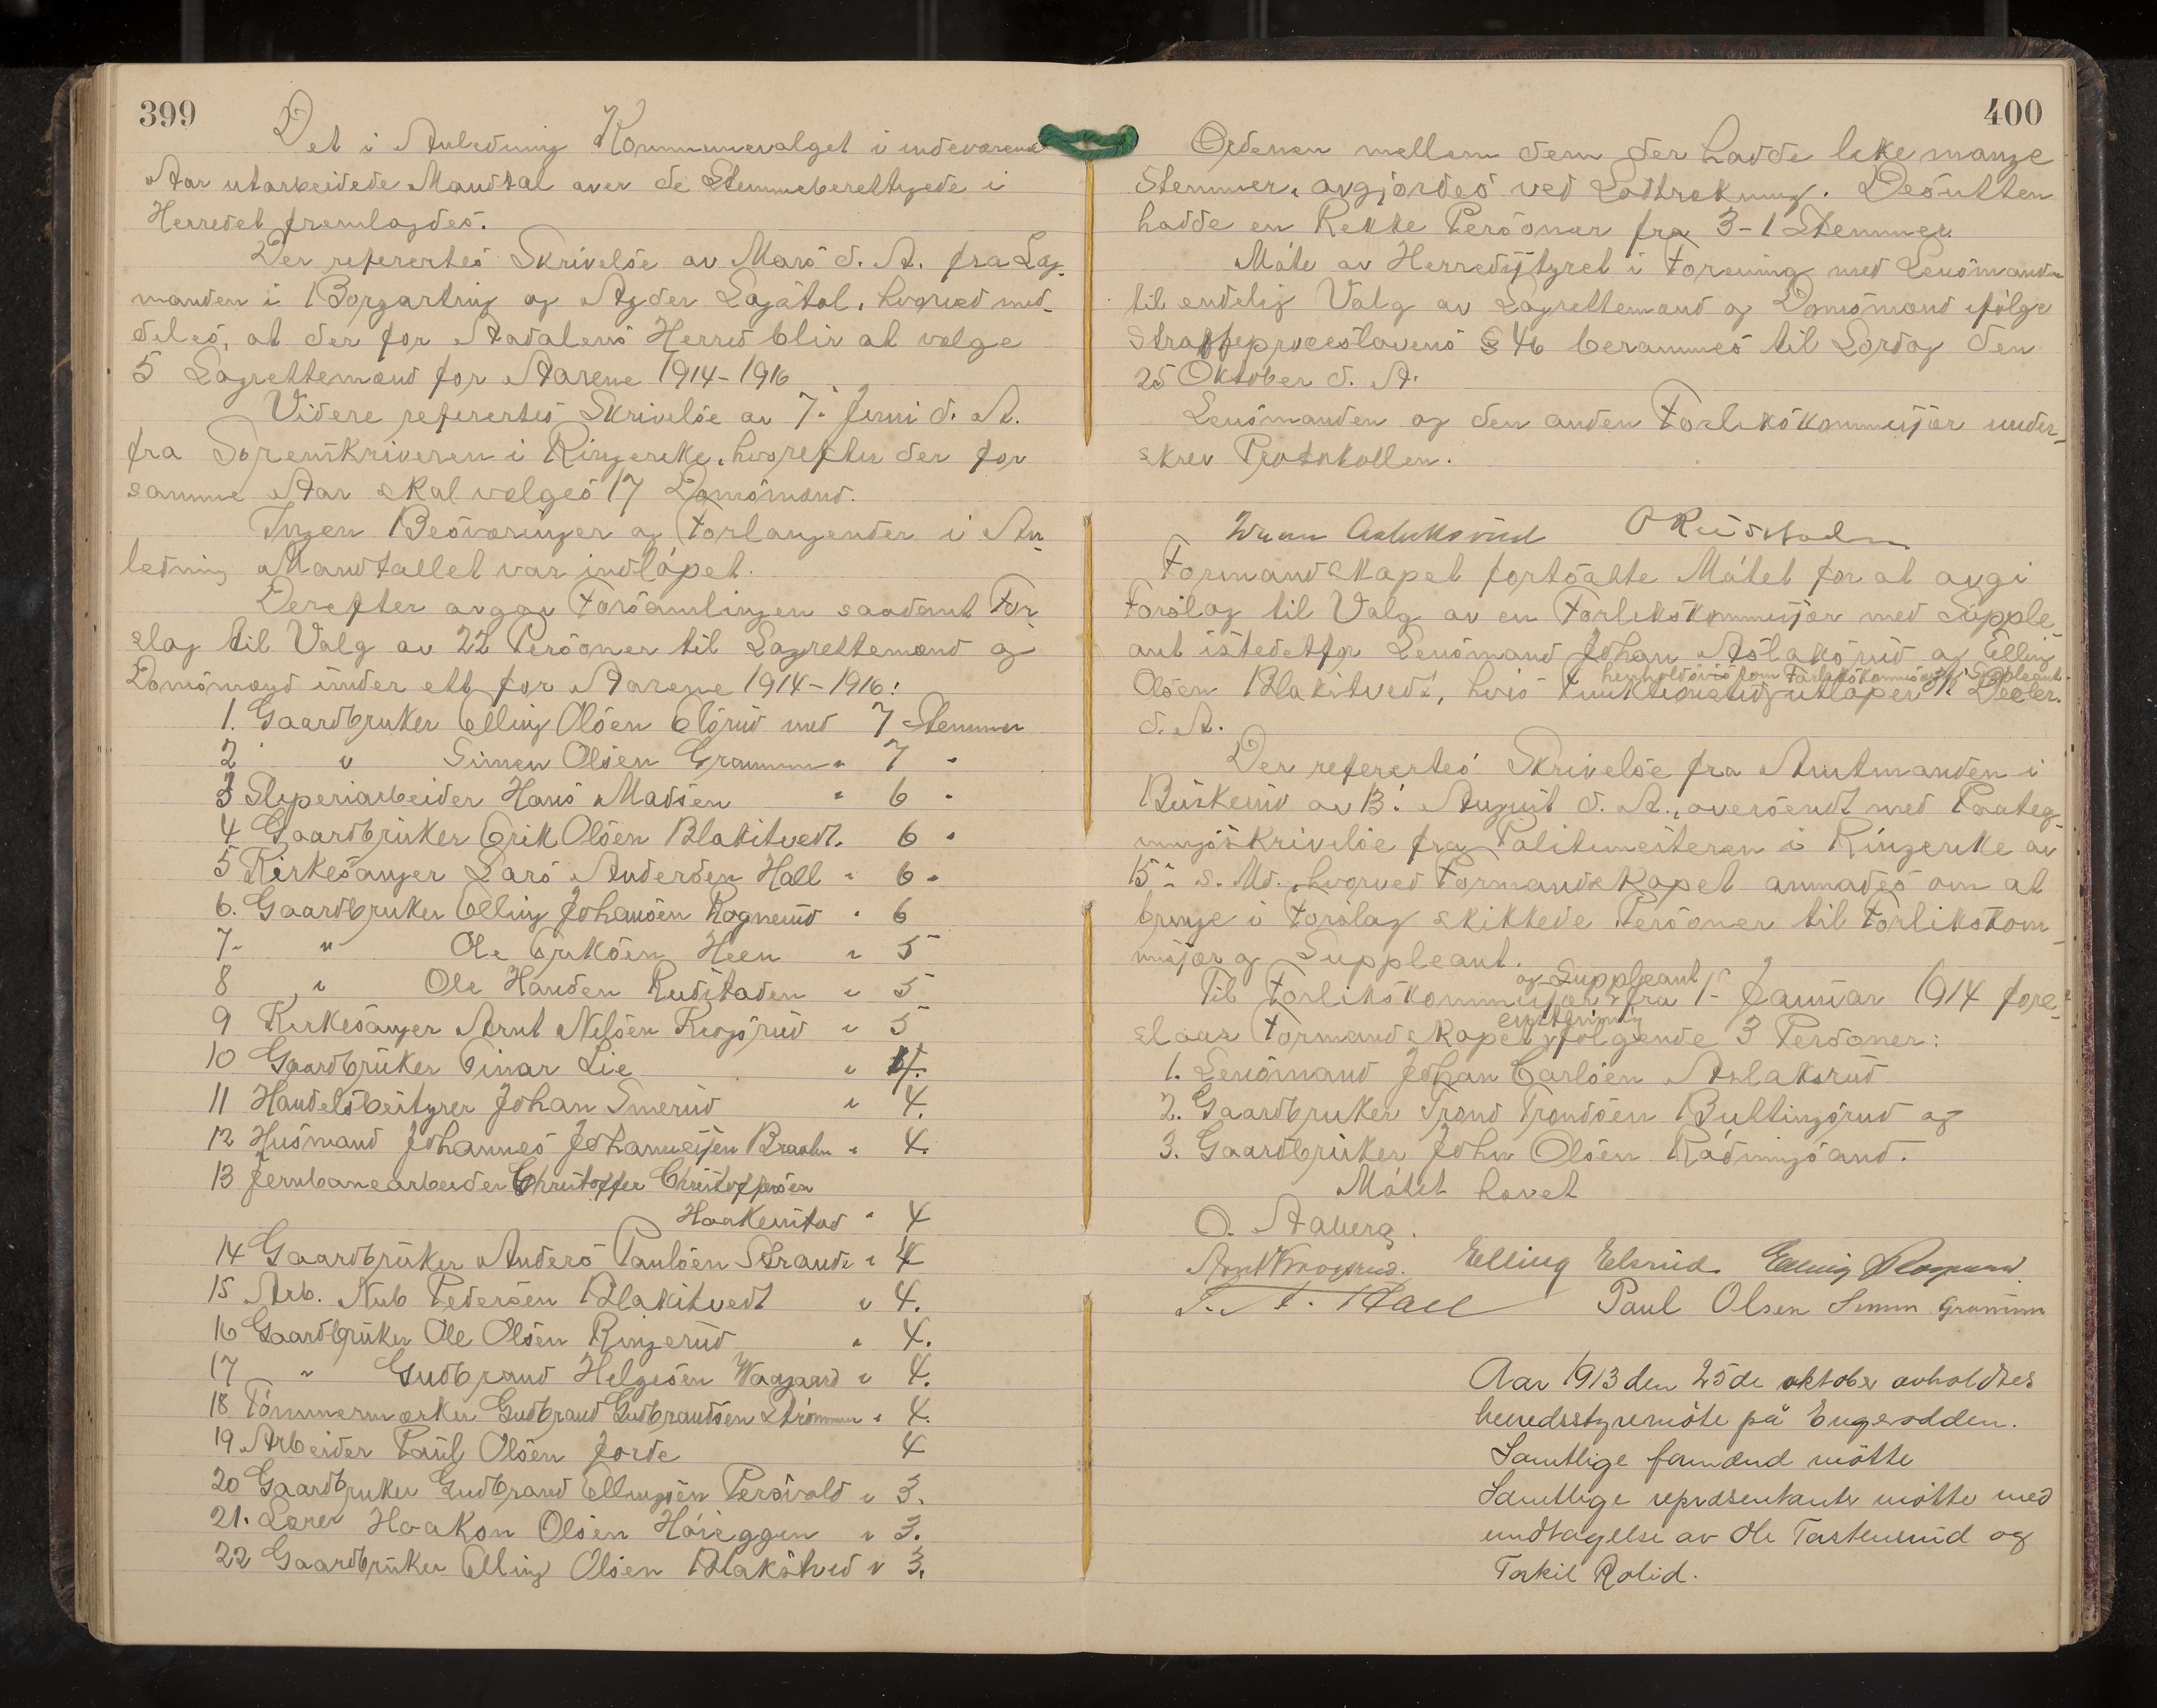 399
Det i Anledning Kommunevalget i indeværende
Aar utarbeidede Mandtal over de Stemmeberettigede i
Herredet fremlagdes.
Der refertes Skrivelse av Mars d. A. fra Lag-
manden i Borgarting og Agder Lagstol, hvorved med-
deles, at der for Aadalens Herred blir at vælge
5 Lagrettemænd for Aarene 1914-1916
Videre refertes Skrivelse av 7. Juni d. A.
fra Sorenskriveren i Ringerike, hvorefter der for
samme Aar skal vælges 17 Domsmænd.
Ingen Besværinger og Forlangender i An-
ledning Mandtallet var indløpet.
Derefter avgav Forsamlingen saadant For-
slag til Valg av 22 Personer til Lagrettemænd og
Domsmænd under ett for Aarene 1914-1916:
1. Gaardbruker Elling Olsen Elsrud med 7 Stemmer
2 " Simen Olsen Grammen " 7 "
3 Sliperiarbeider Hans Madsen " 6 "
4 Gaardbruker Erik Olsen Blakstvedt. 6 "
5 Kirkesanger Lars Andersen Hall " 6 "
6. Gaardbruker Elling Johansen Rognerud " 6
7- " Ole Eriksen Heen " 5
8 " Ole Hansen Rudstaden " 5
9 Kirkesanger Arnt Nilsen Krogsrud " 5
10 Gaardbruker Einar Lie " 4.
11 Handelsbestyrer Johan Smerud " 4.
12 Husmand Johannes Johannessen Braaten " 4.
13 Jernbanearbeider Christoffer Christoffersen
Haakenstad " 4
14 Gaardbruker Anders Paulsen Strande " 4
15 Arb. Nub Pedersen Blakstvedt " 4.
16 Gaardbruker Ole Olsen Ringerud " 4.
17 " Gudbrand Helgesen Waagaard " 4.
18 Tømmermærker Gudbrand Gudbrandsen Strømmen " 4.
19 Arbeider Paul Olsen Jorde 4
20 Gaardbruker Gudbrand Ellingsen Persvold " 3.
21. Lærer Haakon Olsen Høieggen " 3.
22 Gaardbruker Elling Olsen Blakstved " 3.
400
Ordenen mellem dem der hadde like mange
Stemmer, avgjordes ved Lodtrækning. Desutten
hadde en Rekke Personer fra 3-1 Stemmer.
Møte av Herredsstyret i Forening med Lensmanden
til endelig Valg av Lagrettemænd og Domsmænd ifølge
Straffeproceslovens § 46 berammes til Lørdag den
25 Oktober d. A.
Lensmanden og den anden Forlikskommissær under-
skrev Protokollen.
Johan Aslaksrud O Rudstaden
Formandskapet fortsatte Møtet for at avgi
Forslag til Valg av en Forlikskommissær med Supple-
ant istedetfor Lensmand Johan Aslaksrud og Elling
henholdsvis som Forlikskommissær og Suppleant
Olsen Blakstvedt, hvis Funktionstid utløper Decbr.
d. A.
Der refertes Skrivelse fra Amtmanden i
Buskerud av 13. August d. A., oversendt med Paateg-
ningsskrivelse fra Politimesteren i Ringerike av
15. s. Md., hvorved Formandskapet anmodes om at
bringe i Forslag skikkede Personer til Forlikskom-
missær og Suppleant.
og Suppleant
Til Forlikskommissær fra 1- Januar 1914 fore-
enstemmig
slaar Formandskapet følgende 3 Personer:
1. Lensmand Johan Carlsen Aslaksrud
2. Gaardbruker Trond Trondsen Bultingsrud og
3. Gaardbruker John Olsen Rødningsand.
Møtet hævet
O. Aaberg.
Arnt Krogsrud. Elling Elsrud. Elling Rognerud.
L. A. Hall Paul Olsen Simen Grammen
Aar 1913 den 25de oktober avholdtes
herredsstyremøte på Engerodden.
Samtlige formænd møtte
Samtlige repræsentanter møtte med
undtagelse av Ole Tosterud og
Torkil Rolid.